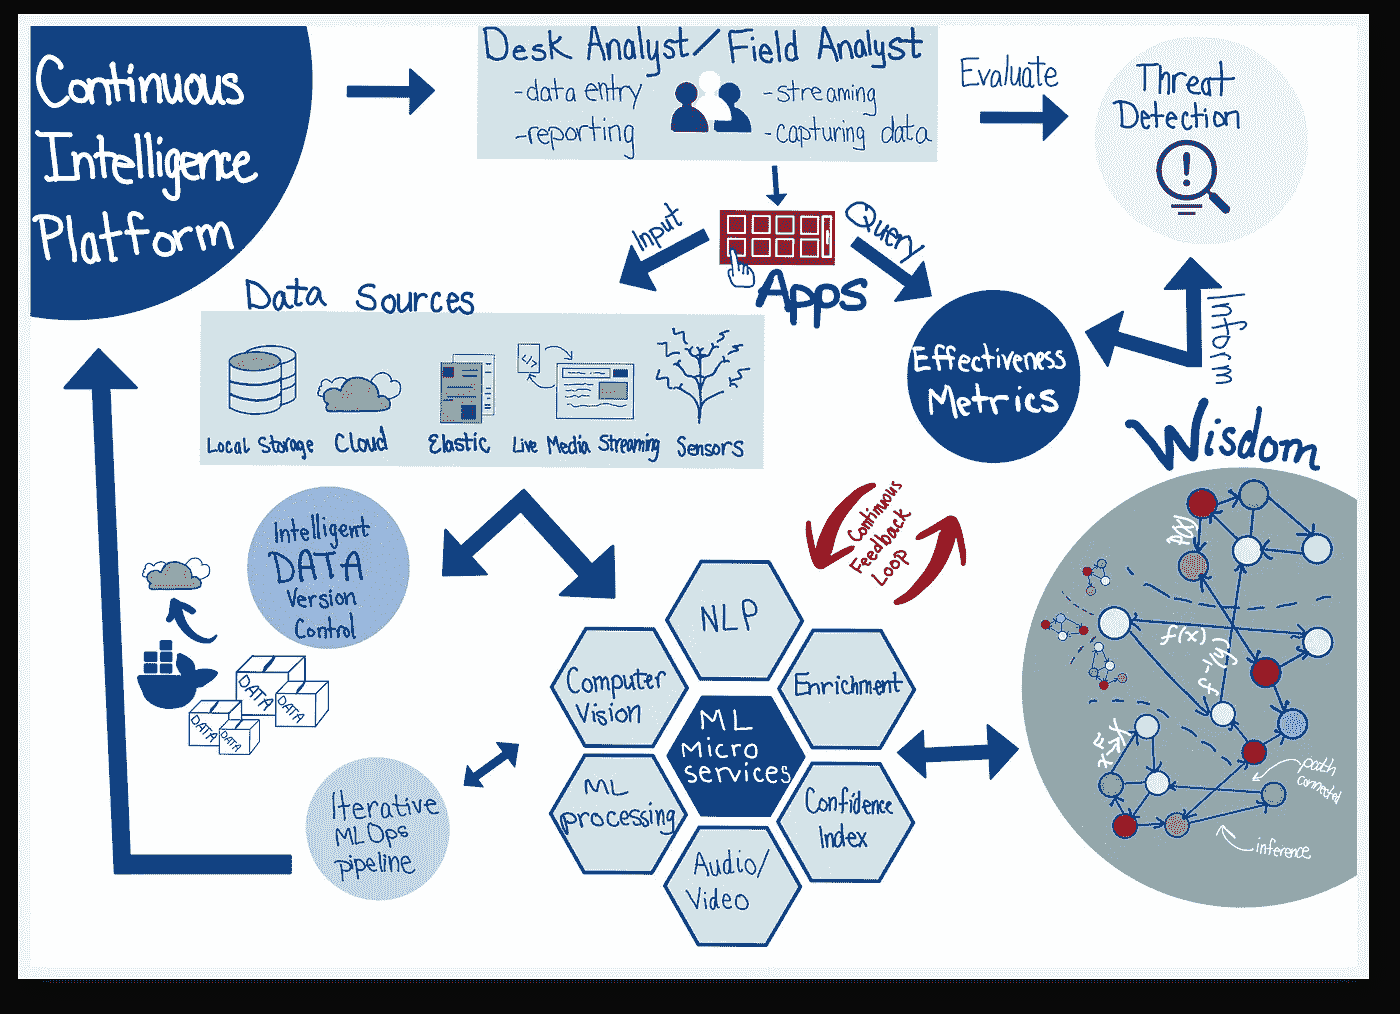 Continuous
Intelligence
Platform
Desk Analyst/Field Analyst
-data entry
-reporting
-streaming
-capturing data
Evaluate
Threat
Detection
!
Input
Query
Apps
Data Sources
</>
Local Storage
Cloud
Elastic
Live Media Streaming
Sensors
Effectiveness
Metrics
Inform
Wisdom
Intelligent
DATA
Version
Control
Continuous
Feedback
Loop
DATA
DATA
DATA
DATA
Iterative
MLOps
pipeline
NLP
Computer
Vision
Enrichment
ML
Micro
services
ML
processing
Confidence
Index
Audio/
Video
f(x)
path
connected
inference